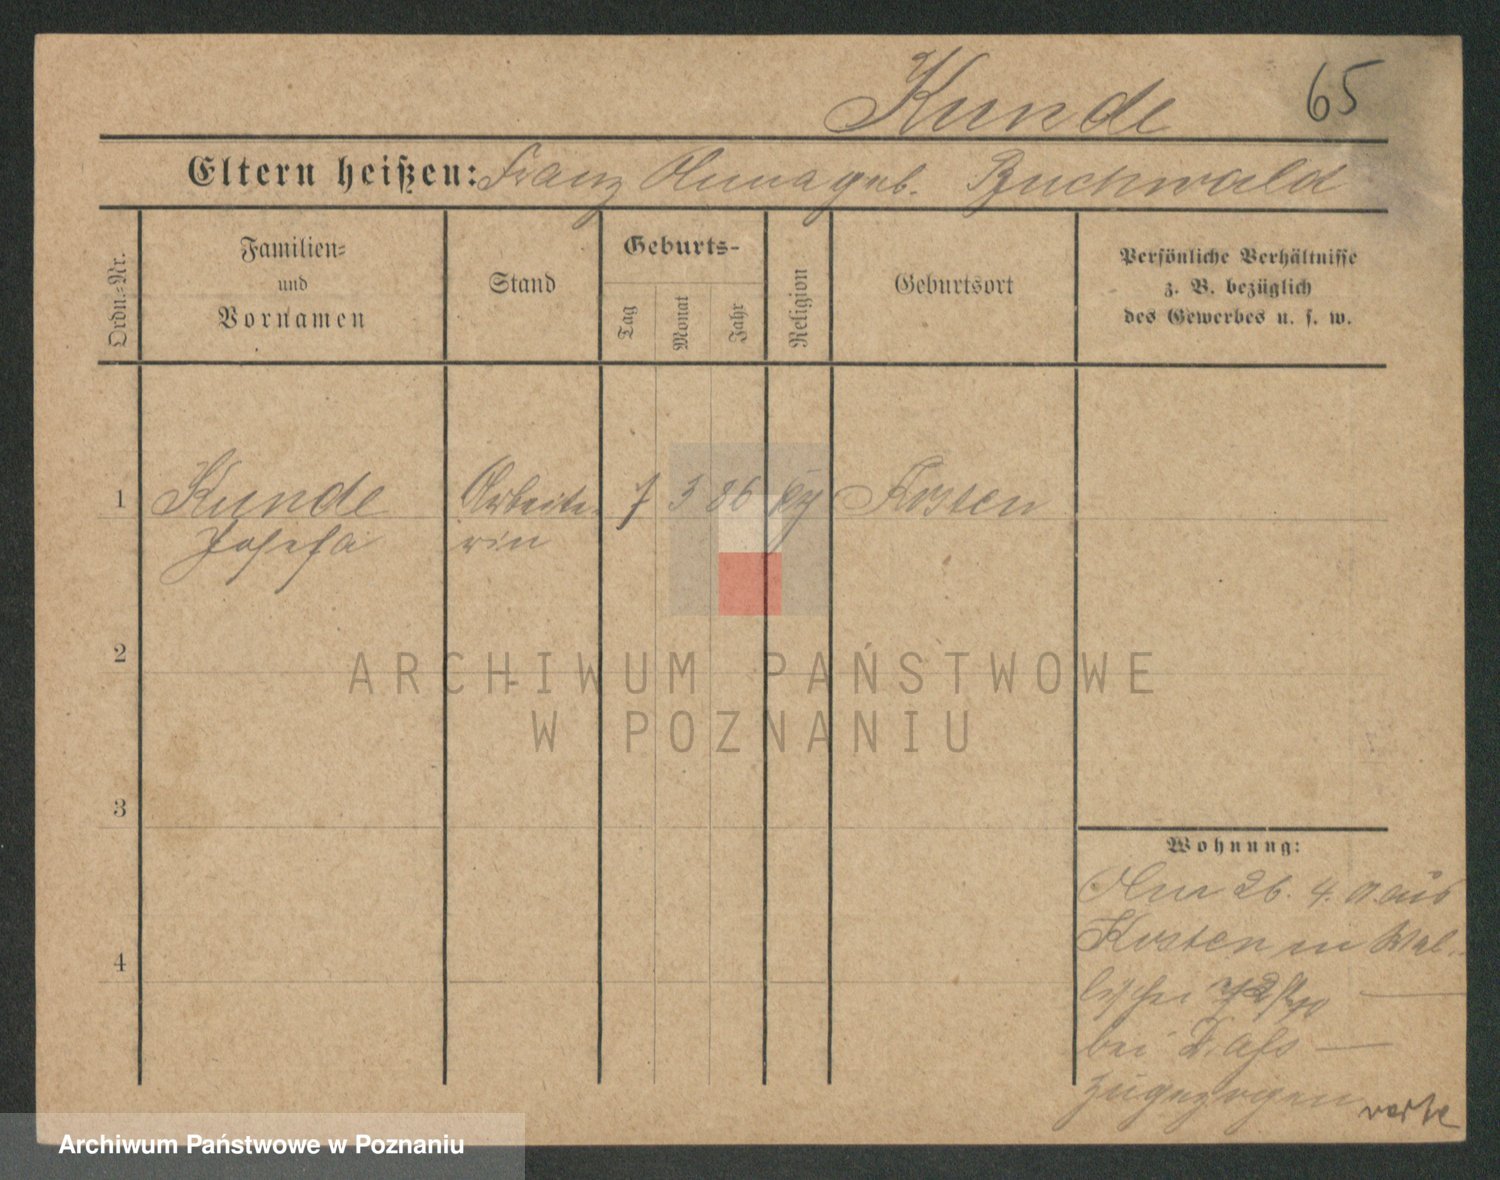 Kunde 65
Eltern heißen: Franz Anna geb. Buchwald
Ordn.-Nr.
Familien-
und
Vornamen
Stand
Geburts-
Tag Monat Jahr
Religion
Geburtsort
Persönliche Verhältnisse
z. B. bezüglich
des Gewerbes u. s. w.
1 Kunde Arbeite- 7 3 86 Kosten
Josefa rin
2
ARCHIWUM PAŃSTWOWE
W POZNANIU
3
Wohnung:
Am 26. 4. aus
Kosten in Wal-
4
lischei
bei
zugezogen
verte
Archiwum Państwowe w Poznaniu